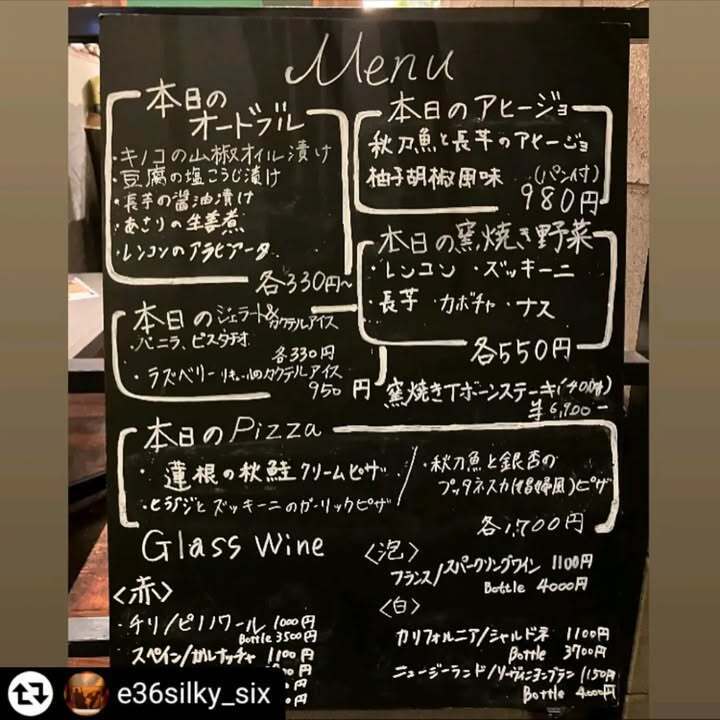 Menu
本日の
オードブル
・キノコの山椒オイル漬け
・豆腐の塩こうじ漬け
・長芋の醤油漬け
・あさりの生姜煮
・レンコンのアラビアータ
各330円~
本日のアヒージョ
秋刀魚と長芋のアヒージョ
柚子胡椒風味 (パン付)
980円
本日の窯焼き野菜
・レンコン ・ズッキーニ
・長芋 ・カボチャ ・ナス
各550円
本日のジェラート&カクテルアイス
・バニラ、ピスタチオ
各330円
・ラズベリー リキュールのカクテルアイス
950円
窯焼きTボーンステーキ
¥6,900-
本日のPizza
・蓮根の秋鮭クリームピザ
・秋刀魚と銀杏の
プッタネスカ(娼婦風)ピザ
とズッキーニのガーリックピザ
各1,700円
Glass Wine
<赤>
・チリ/ピノノワール 1000円
Bottle 3500円
・スペイン/ガルナッチャ 1100円
円
円
<泡>
フランス/スパークリングワイン 1100円
Bottle 4000円
<白>
カリフォルニア/シャルドネ 1100円
Bottle 3700円
ニュージーランド/ソーヴィニヨンブラン 1150円
Bottle 4000円
e36silky_six